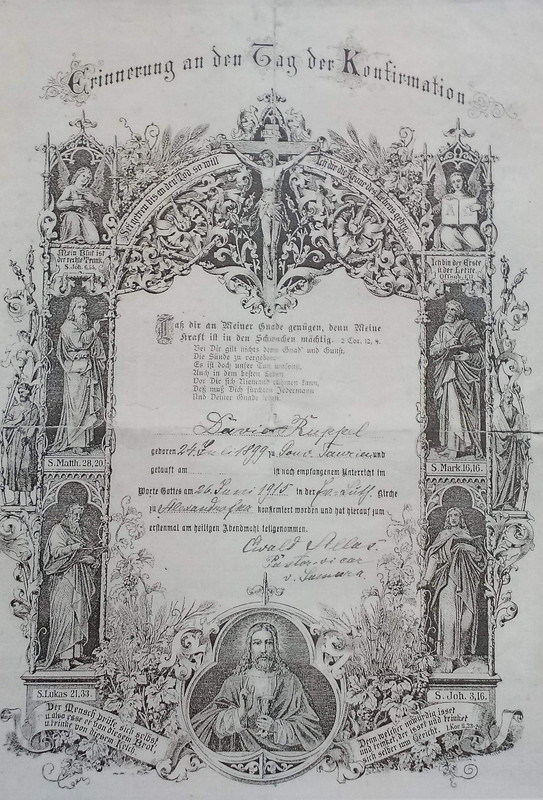 Erinnerung an den Tag der Konfirmation
Sei getreu bis an den Tod, so will
ich dir die Krone des Lebens geben.
Mein Blut ist
der rechte Trank.
S. Joh. 6,55.
Ich bin der Erste
u. der Letzte.
Offenb. 1,11.
Laß dir an Meiner Gnade genügen, denn Meine
Kraft ist in den Schwachen mächtig. 2 Cor. 12,
Bei Dir gilt nichts denn Gnad' und Gunst,
Die Sünde zu vergeben,
Es ist doch unser Tun umsonst,
Auch in dem besten Leben.
Vor Dir sich Niemand rühmen kann,
Deß muß Dich fürchten Jedermann
Und Deiner Gnade leben.
David Kuppel
geboren 24 Juli 1899 zu
getauft am ist nach empfangenem Unterricht im
Worte Gottes am 26 Juni 1915 in der Ev. Luth. Kirche
zu Alexandrofka konfirmiert worden und hat hierauf zum
erstenmal am heiligen Abendmahl teilgenommen.
Ewald
Pastor-vicar
v. Samara
S. Matth. 28,20.
S. Mark. 16,16.
S. Lukas 21,33.
S. Joh. 3,16.
Der Mensch prüfe sich selbst
u. also esse er von diesem Brot,
u. trinke von diesem Kelch.
Denn welcher unwürdig isset
und trinket, der isset und trinket
sich selbst um Gericht. I. Kor. 11,